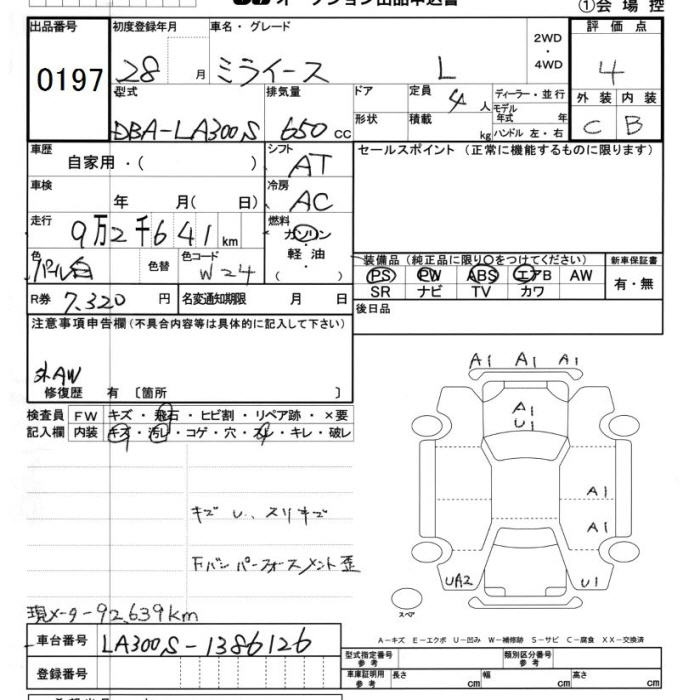 オークション出品申込書
①会場控
出品番号 初度登録年月 車名・グレード 評価点
0197 28 月 ミライース L 2WD ・ 4WD 4
型式 排気量 ドア 定員 4 人 ディーラー・並行 外装 内装
DBA-LA300S 650 cc 形状 積載 kg モデル年式 年 ハンドル 左・右 C B
車歴 シフト セールスポイント (正常に機能するものに限ります)
自家用・( ) AT
車検 冷房
年 月( 日) AC
走行 燃料
9万2千641 km ガソリン・軽油・( )
色 色替 色コード 装備品 (純正品に限り○をつけてください) 新車保証書
パール白 W24 PS PW ABS エアB AW 有・無
SR ナビ TV カワ
R券 7,320 円 名変通知期限 月 日 後日品
注意事項申告欄 (不具合内容等は具体的に記入して下さい)
社外AW
修復歴 有 〔箇所 〕
A1 A1 A1
検査員 FW キズ・飛石・ヒビ割・リペア跡・×要
記入欄 内装 キズ・汚レ・コゲ・穴・スレ・キレ・破レ
A1
U1
キズ U、スリキズ
A1
A1
下バンパーフォースメント歪
UA2 U1
スペア
現メーター92,639km
A-キズ E-エクボ U-凹み W-補修跡 S-サビ C-腐食 XX-交換済
車台番号 LA300S-1386126
型式指定番号 参考 類別区分番号 参考
登録番号 車庫証明用 参考 長さ cm 幅 cm 高さ cm